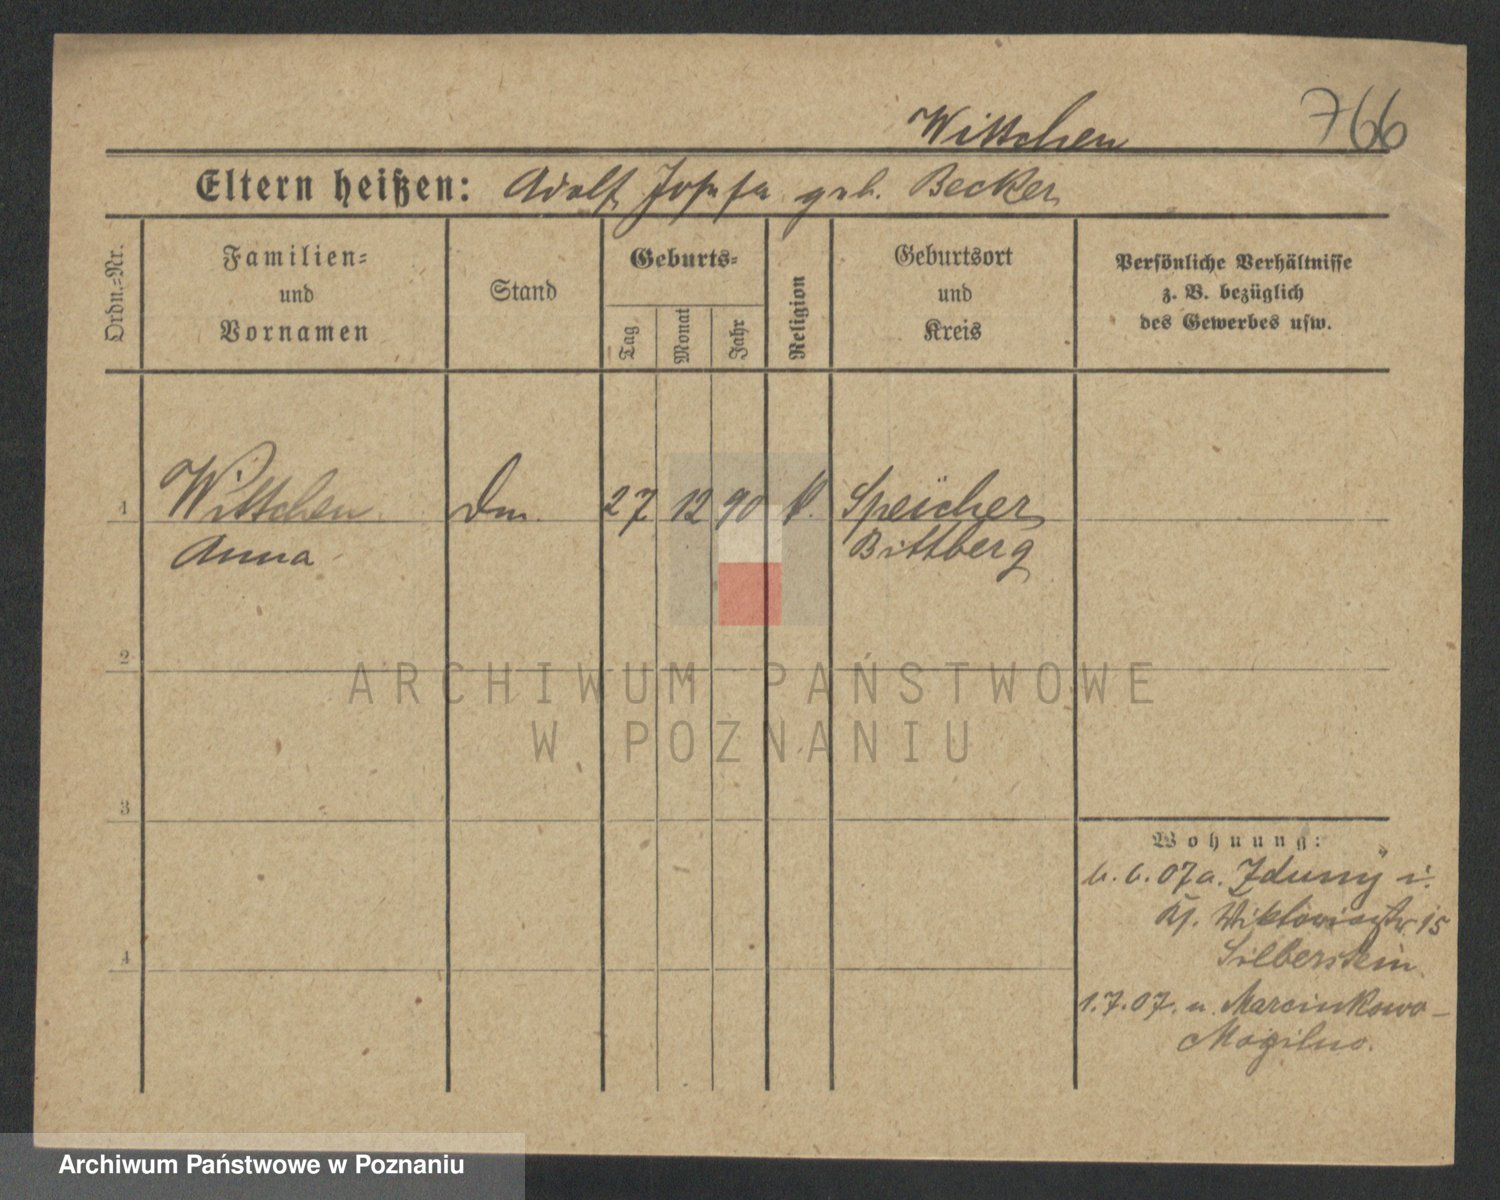 Wittchen 766
Eltern heißen: Adolf Josefa geb. Becker
Ordn.-Nr.
Familien-
und
Vornamen
Stand
Geburts-
Tag
Monat
Jahr
Religion
Geburtsort
und
Kreis
Persönliche Verhältnisse
z. B. bezüglich
des Gewerbes usw.
1 Wittchen Dm. 27 12 90 k. Speicher
Anna Bittberg
2
3
4
Wohnung:
6.07 a. Zduny i.
Viktoriastr 15
Silberstein
1.7.07. n. Marcinkowo-
Mogilno.
ARCHIWUM PAŃSTWOWE
W POZNANIU
Archiwum Państwowe w Poznaniu